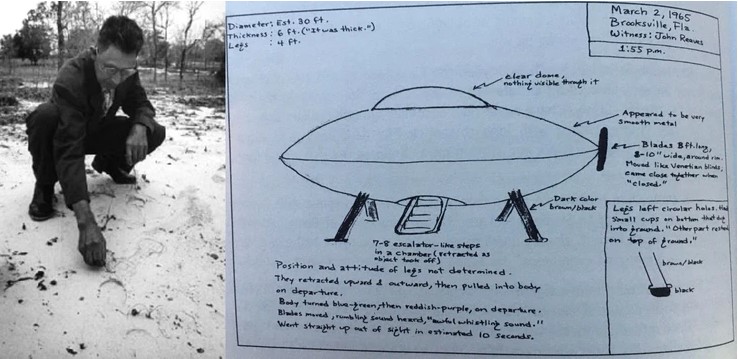 Diameter: Est. 30 ft.
Thickness: 6 ft. ("It was thick.")
Legs : 4 ft.
March 2, 1965
Brooksville, Fla.
Witness: John Reeves
1:55 p.m.
clear dome,
nothing visible through it
Appeared to be very
smooth metal
Blades 8 ft. long,
8-10" wide, around rim.
Moved like Venetian blinds,
came close together when
"closed."
Dark color
brown/black
7-8 escalator-like steps
in a chamber (retracted as
object took off)
Legs left circular holes, had
small cups on bottom that dug
into ground. "Other part rested
on top of ground."
brown/black
black
Position and attitude of legs not determined.
They retracted upward & outward, then pulled into body
on departure.
Body turned blue-green, then reddish-purple, on departure.
Blades moved, rumbling sound heard, "awful whistling sound."
Went straight up out of sight in estimated 10 seconds.